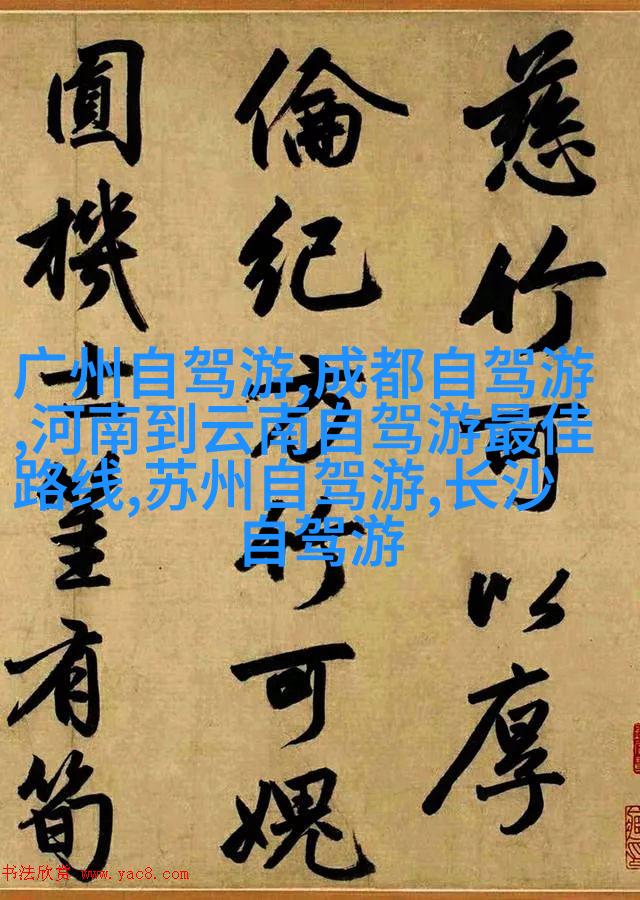 慈竹可以厚
倫紀方竹可愧
圓機士有筍
广州自驾游,成都自驾游
,河南到云南自驾游最佳
路线,苏州自驾游,长沙
自驾游
书法欣赏 www.yac8.com